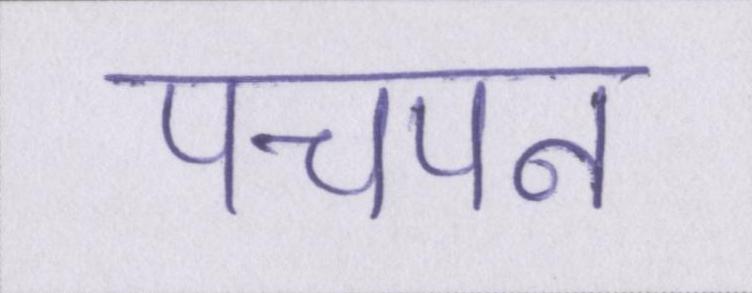 पचपन